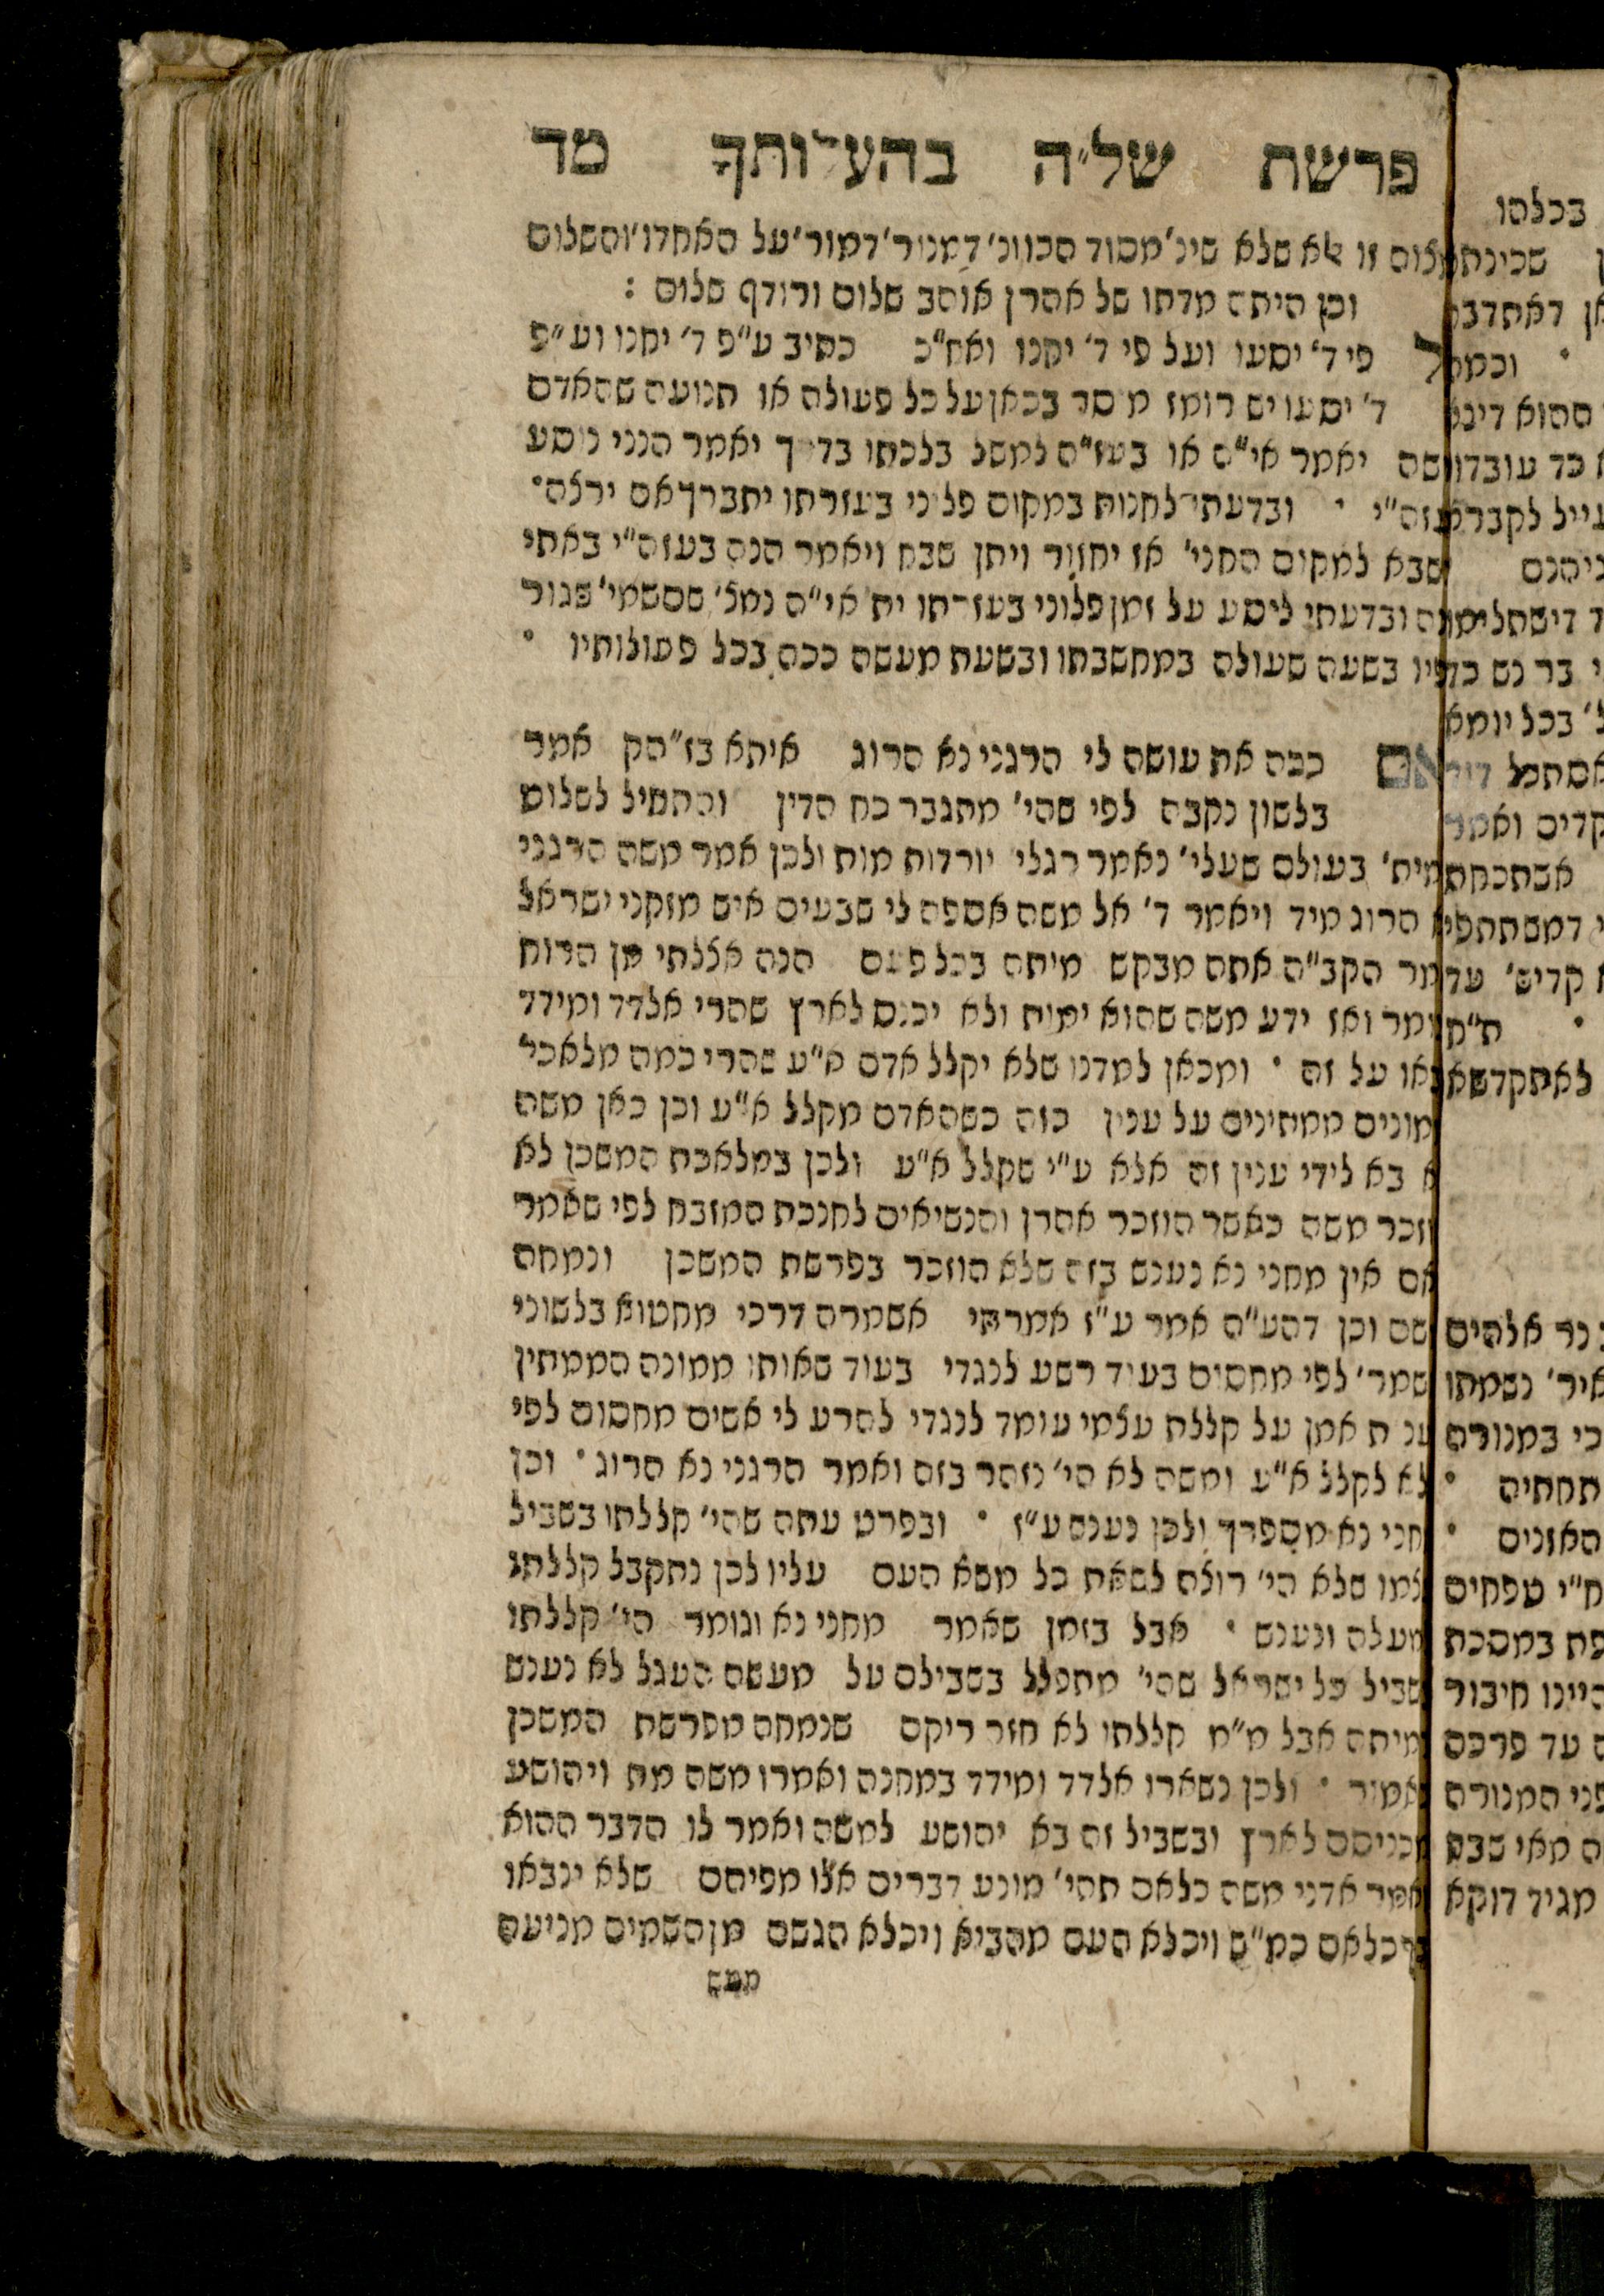 פרשת של״ה בהעלותך מד
שלום זו לא שלא שינ׳ מסוד הכוונ׳ דמנור׳ דמור׳ על האחדו׳ והשלום
וכן היתה מדתו של אהרן אוהב שלום ורודף שלום :
פי ד׳ יסעו ועל פי ד׳ יחנו ואח״כ כתיב ע״פ ד׳ יחנו וע״פ
ד׳ יסעו יש רומז מוסר בכאן על כל פעולה או תנועה שהאדם
יאמר אי״ה או בעז״ה למשל בלכתו בדרך יאמר הנני נוסע
בעזה״י ׳ ובדעתי לחנות במקום פלוני בעזרתו יתברך אם ירצה׳
שבא למקום החני׳ אז יחזור ויתן שבח ויאמר הנה בעזה״י באתי
ובדעתי ליסע על זמן פלוני בעזרתו ית׳ אי״ה נמצ׳ שםשמי׳ שגור
בשעה שעולה במחשבתו ובשעת מעשה ככה בכל פעולותיו ׳
ככה את עושה לי הרגני נא הרוג איתא בז״הק אמר
בלשון נקבה לפי שהי׳ מתגבר כח הדין והתחיל לשלוט
בעולם שעלי׳ נאמר רגלי׳ יורדות מות ולכן אמר משה הרגני
הרוג מיד ויאמר ד׳ אל משה אספה לי שבעים איש מזקני ישראל
הקב״ה אתה מבקש מיתה בכל פעם הנה אצלתי מן הרוח
ואז ידע משה שהוא ימות ולא יכנס לארץ שהרי אלדד ומידד
על זה ׳ ומכאן למדנו שלא יקלל אדם א״ע שהרי כמה מלאכי
ממונים ממתינים על ענין כזה כשהאדם מקלל א״ע וכן כאן משה
בא לידי ענין זה אלא ע״י שקלל א״ע ולכן במלאכת המשכן לא
הוזכר משה כאשר הוזכר אהרן והנשיאים לחנכת המזבח לפי שאמר
אם אין מחני נא נענש בזה שלא הוזכר בפרשת המשכן ונמחה
שם וכן דהע״ה אמר ע״ז אמרתי אשמרה דרכי מחטוא בלשוני
אשמר׳ לפי מחסום בעוד רשע לנגדי בעוד שאותו ממונה הממתין
אמן על קללת עצמי עומד לנגדי להרע לי אשים מחסום לפי
לא לקלל א״ע ומשה לא הי׳ נזהר בזה ואמר הרגני נא הרוג ׳ וכן
מחני נא מספרך ולכן נענש ע״ז ׳ ובפרט עתה שהי׳ קללתו בשביל
עצמו שלא הי׳ רוצה לשאת כל משא העם עליו לכן נתקבל קללתו
למעלה ונענש ׳ אבל בזמן שאמר מחני נא וגומר הי׳ קללתו
בשביל כל ישראל שהי׳ מתפלל בשבילם על מעשה העגל לא נענש
במיתה אבל מ״מ קללתו לא חזר ריקם שנמחה מפרשת המשכן
כאמור ׳ ולכן נשארו אלדד ומידד במחנה ואמרו משה מת ויהושע
מכניסם לארץ ובשביל זה בא יהושע למשה ואמר לו הדבר ההוא
ואמר אדני משה כלאם תהי׳ מונע דברים אלו מפיהם שלא ינבאו
כלאם כמ״ש ויכלא העם מהביא ויכלא הגשם מן השמים מניעה
ממש
בכלהו
שכינתא
דאתדבק
וכמה
ההוא דינא
כד עובדוי
לקברא
דישתלים
בר נש כד
בכל יומא
אסתכל
ואמר
אשתכחת
דמשתתפי
קדיש׳ עד
ת״ח
לאתקדשא
נר אלהים
נשמתו
כי במנורה
תחתיה ׳
האזנים ׳
ח״י טפחים
במסכת
היינו חיבור
עד פרכם
פני המנורה
מאי שבא
מגיד דוקא